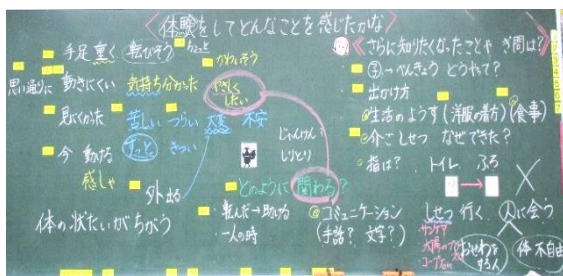 《体験をしてどんなことを感じたかな》
手足重く 転びそう ちょっと
かわいそう
思い通りに 動きにくい 気持ち分かった
やさしくしたい
見にくかった 苦しい つらい 大変 不安
じゃんけん？
しりとり
今 動ける ずっと きつい
感しゃ
外出る
どのように 関わる？
体の状たいがちがう
・転んだ→助ける
・一人の時
コミュニケーション
(手話？ 文字？)
《さらに知りたくなったことや ぎ問は？》
べんきょう どうやって？
出かけ方
生活のようす (洋服の着方) (食事)
介ごしせつ なぜできた？
指は？ トイレ ふろ
しせつ 行く 人に会う
おせわを
する人
体 不自由